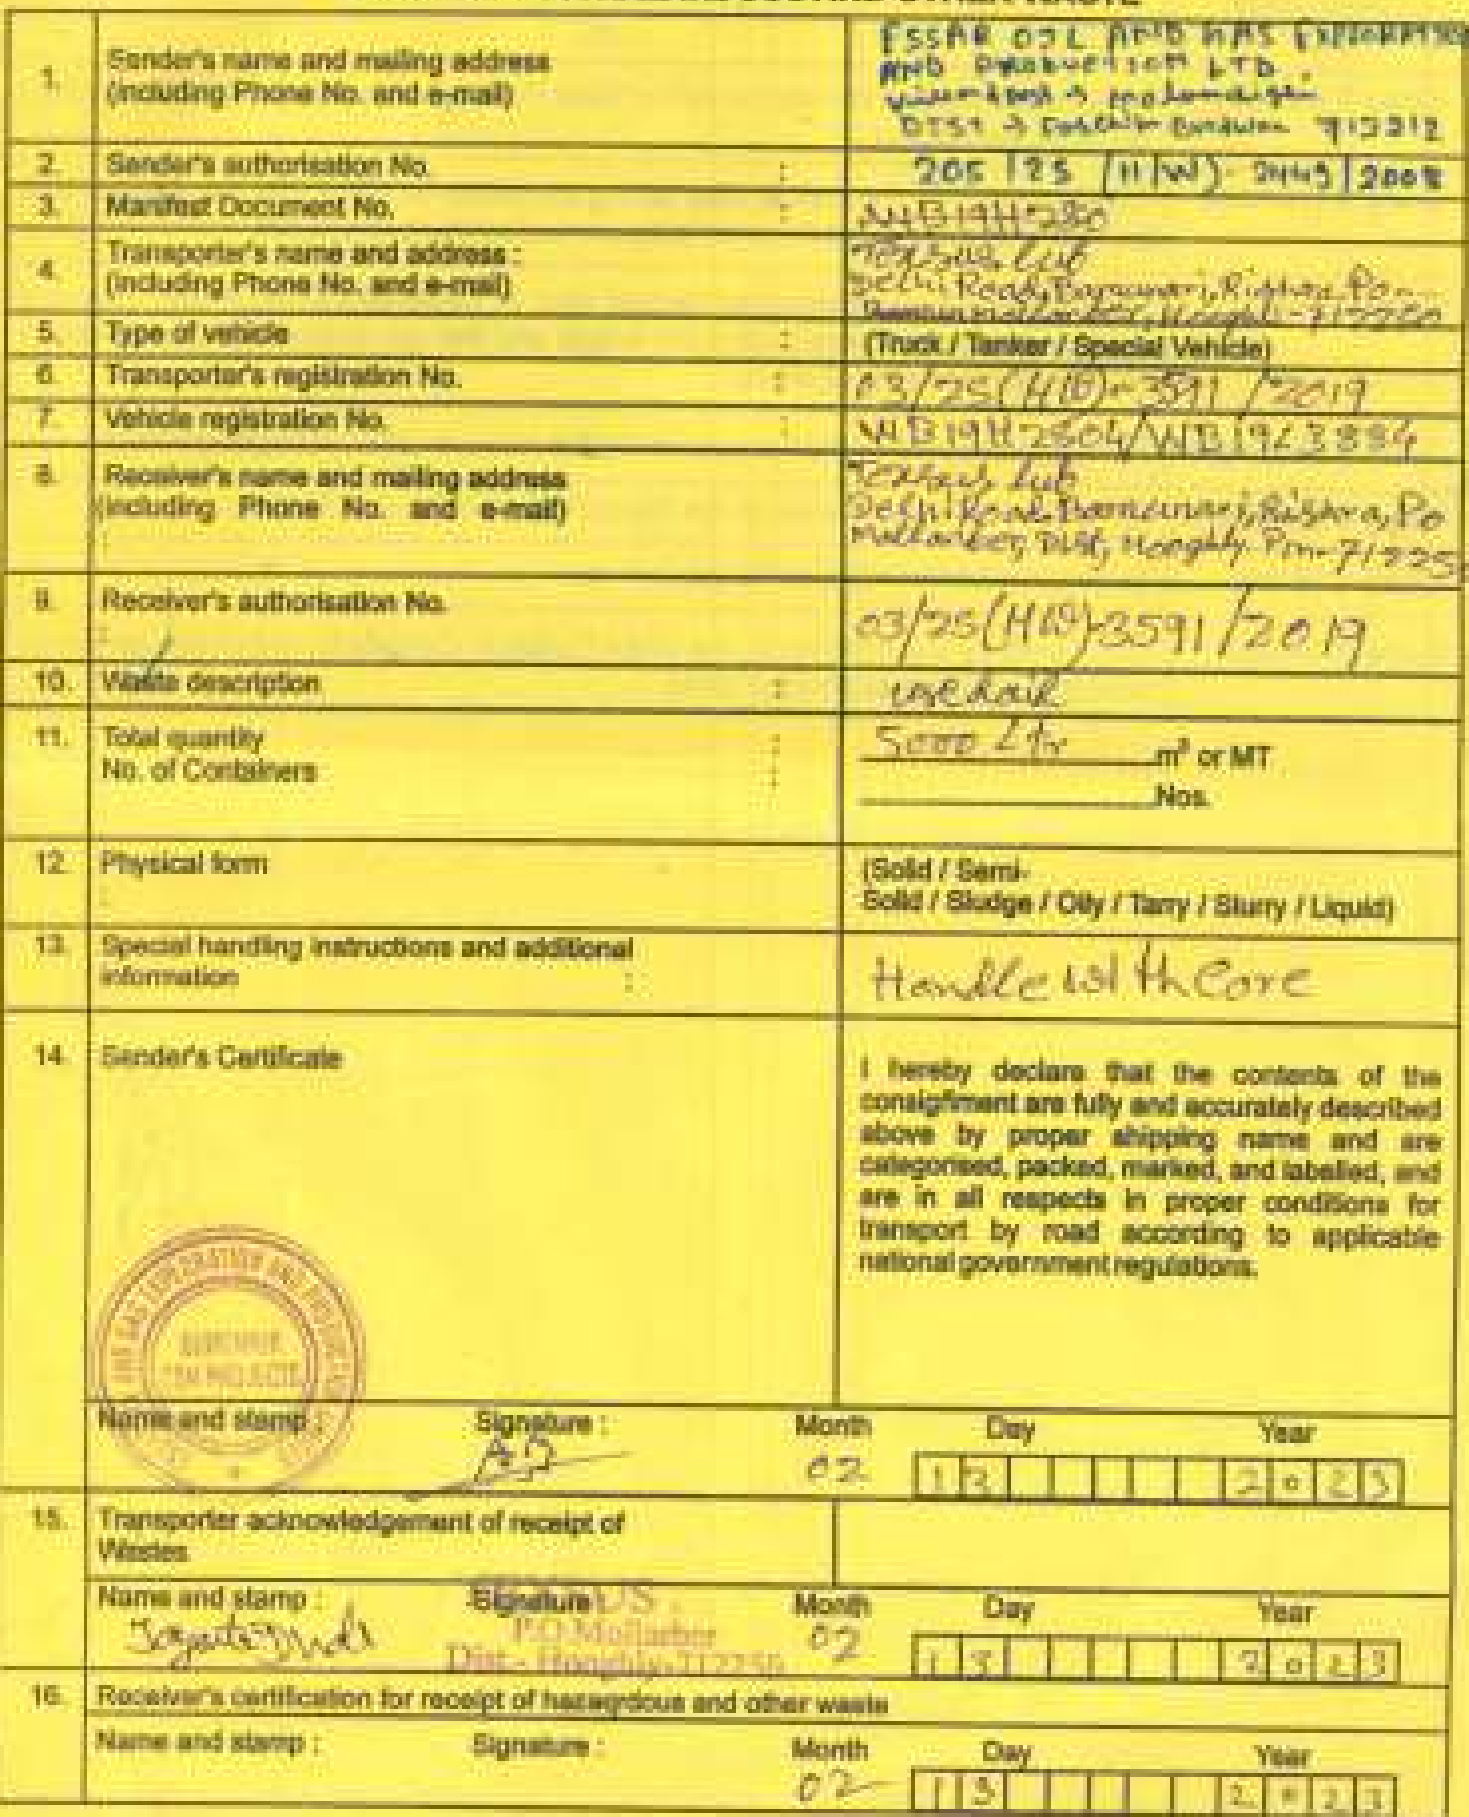 1. Sender's name and mailing address
(including Phone No. and e-mail)
ESSAR OIL AND GAS EXPLORATION
AND PRODUCTION LTD.
DIST → Paschim Bardwan 713212
2. Sender's authorisation No. :
205 / 2S (H/W)- 2449 / 2008
3. Manifest Document No. :
4. Transporter's name and address :
(including Phone No. and e-mail)
Lub
Delhi Road, Bamunari, Rishra, Po-
Hooghli - 712250
5. Type of vehicle :
(Truck / Tanker / Special Vehicle)
6. Transporter's registration No. :
03/2S(HW)-3591/2019
7. Vehicle registration No. :
WB19H2504/WB19L3884
8. Receiver's name and mailing address
(including Phone No. and e-mail)
:
Lub
Delhi Road, Bamunari, Rishra, Po
Mallarber, Dist, Hooghly. Pin-71225
9. Receiver's authorisation No.
:
03/2S(HW)3591/2019
10. Waste description :
used oil
11. Total quantity :
No. of Containers :
5000 Ltr m³ or MT
Nos.
12. Physical form
:
(Solid / Semi-
Solid / Sludge / Oily / Tarry / Slurry / Liquid)
13. Special handling instructions and additional
information :
Handle with Care
14. Sender's Certificate
I hereby declare that the contents of the
consignment are fully and accurately described
above by proper shipping name and are
categorised, packed, marked, and labelled, and
are in all respects in proper conditions for
transport by road according to applicable
national government regulations.
GAS EXPLORATION AND
Name and stamp : Signature : Month Day Year
02 13 2023
15. Transporter acknowledgement of receipt of
Wastes
Name and stamp : Signature Month Day Year
P.O-Mollarber
Dist - Hooghly-712250
02 13 2023
16. Receiver's certification for receipt of hazardous and other waste
Name and stamp : Signature : Month Day Year
02 13 2023